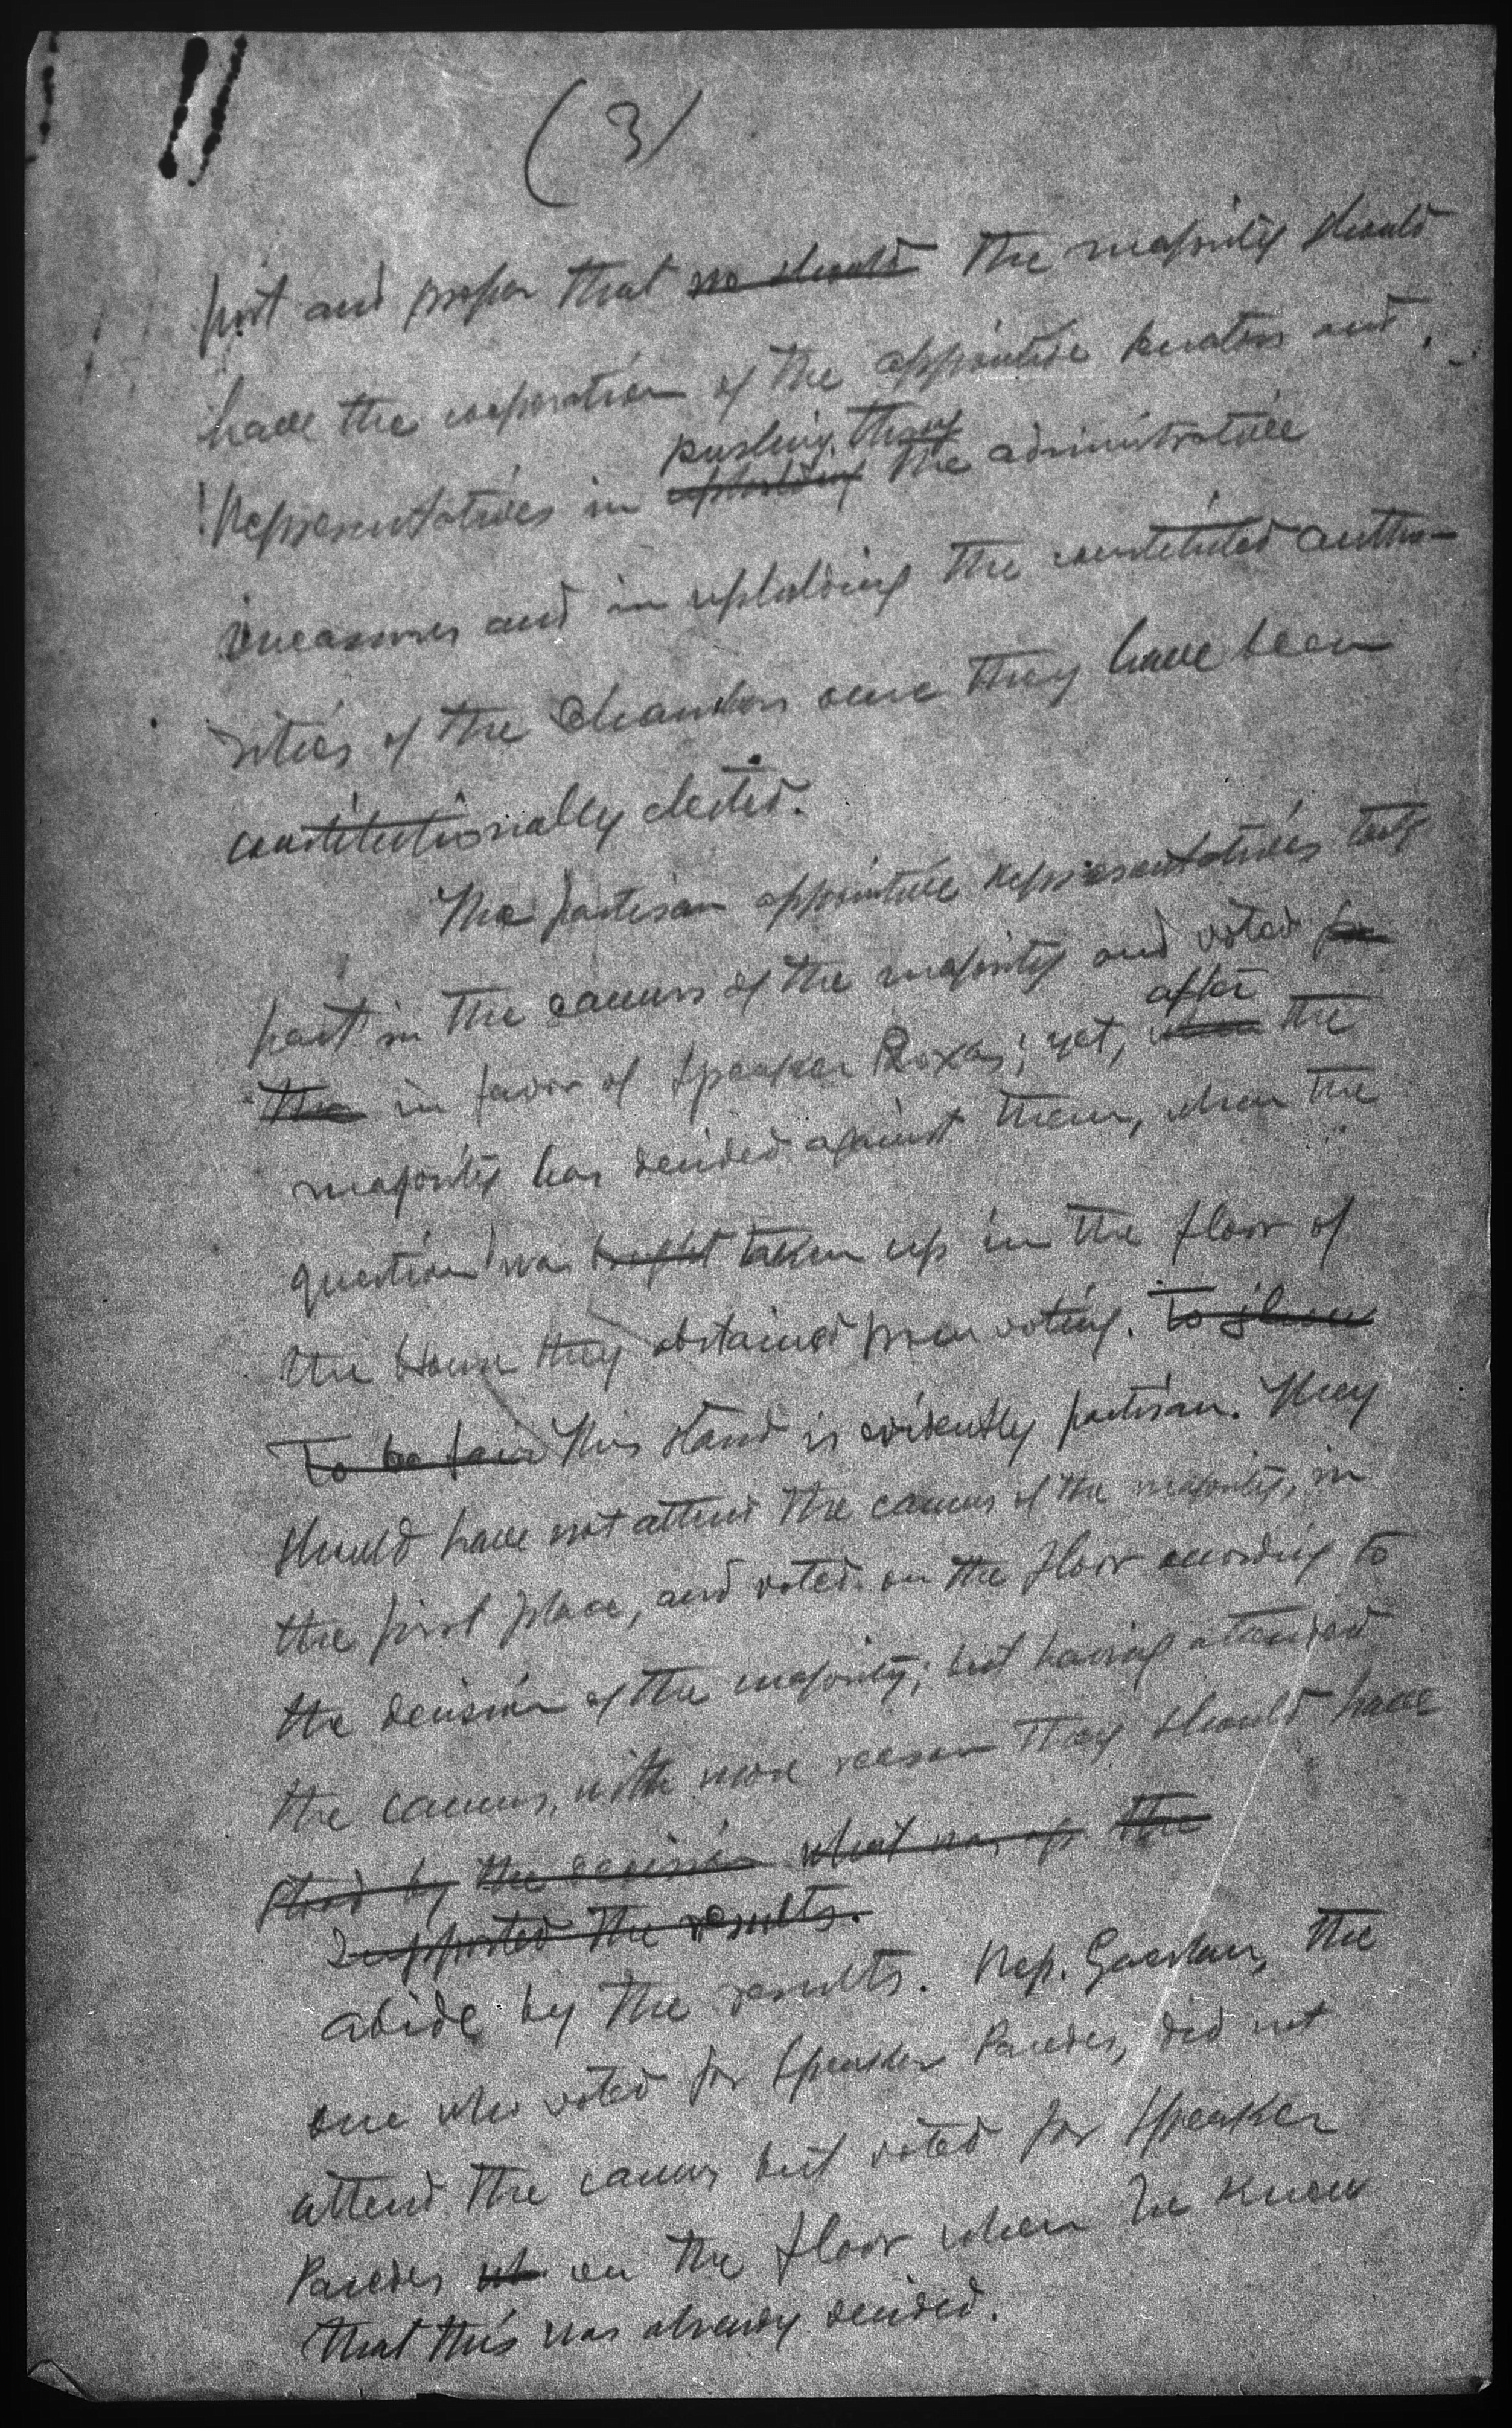 (3)
just and proper that no should the majority should
have the cooperation of the appointive senators and
Representatives in upholding the administrative
pushing thru
measures and in upholding the constituted autho-
rities of the Chambers once they have been
constitutionally elected.
The partisan appointive representatives took
part in the caucus of the majority and voted for
the in favor of Speaker Roxas; yet, when the
after
majority has decided against them, when the
question was brought taken up in the floor of
the House they abstained from voting. To show
To be fair This stand is evidently partisan. They
should have not attend the caucus of the majority, in
the first place, and voted on the floor according to
the decision of the majority; but having attended
the caucus, with more reason they should have
stood by the decision what was the
supported the results.
abide by the results. Rep. the
one who voted for Speaker Paredes, did not
attend the caucus but voted for Speaker
Paredes on the floor when he knew
that this was already decided.